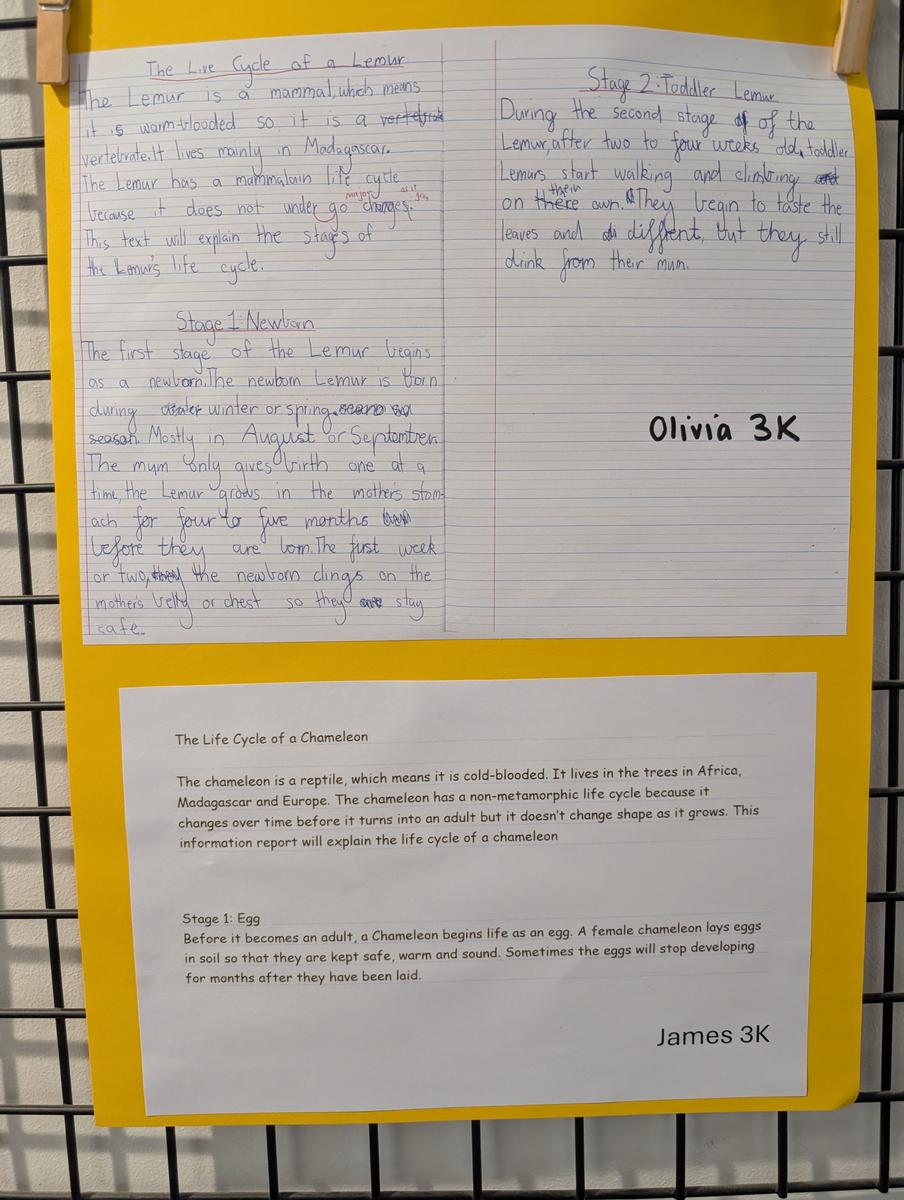 The Live Cycle of a Lemur
The Lemur is a mammal, which means
it is warm-blooded so it is a vertebrat
vertebrate. It lives mainly in Madagascar.
The Lemur has a mammalain life cycle
because it does not under go major changes. as it
This text will explain the stages of
the Lemur's life cycle.
Stage 1: Newborn
The first stage of the Lemur begins
as a newborn. The newborn Lemur is born
during winter or spring.
season. Mostly in August or September.
The mum only gives birth one at a
time, the Lemur grows in the mother's stom-
ach for four to five months
before they are born. The first week
or two, they the newborn clings on the
mother's belly or chest so they are stay
safe.
Stage 2: Toddler Lemur
During the second stage of of the
Lemur, after two to four weeks old, toddler
Lemurs start walking and climbing and
on there their own. They begin to taste the
leaves and diffrent, but they still
drink from their mum.
Olivia 3K
The Life Cycle of a Chameleon
The chameleon is a reptile, which means it is cold-blooded. It lives in the trees in Africa,
Madagascar and Europe. The chameleon has a non-metamorphic life cycle because it
changes over time before it turns into an adult but it doesn't change shape as it grows. This
information report will explain the life cycle of a chameleon
Stage 1: Egg
Before it becomes an adult, a Chameleon begins life as an egg. A female chameleon lays eggs
in soil so that they are kept safe, warm and sound. Sometimes the eggs will stop developing
for months after they have been laid.
James 3K